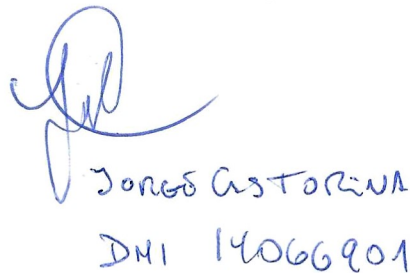 JORGE CASTORINA
DNI 14066901